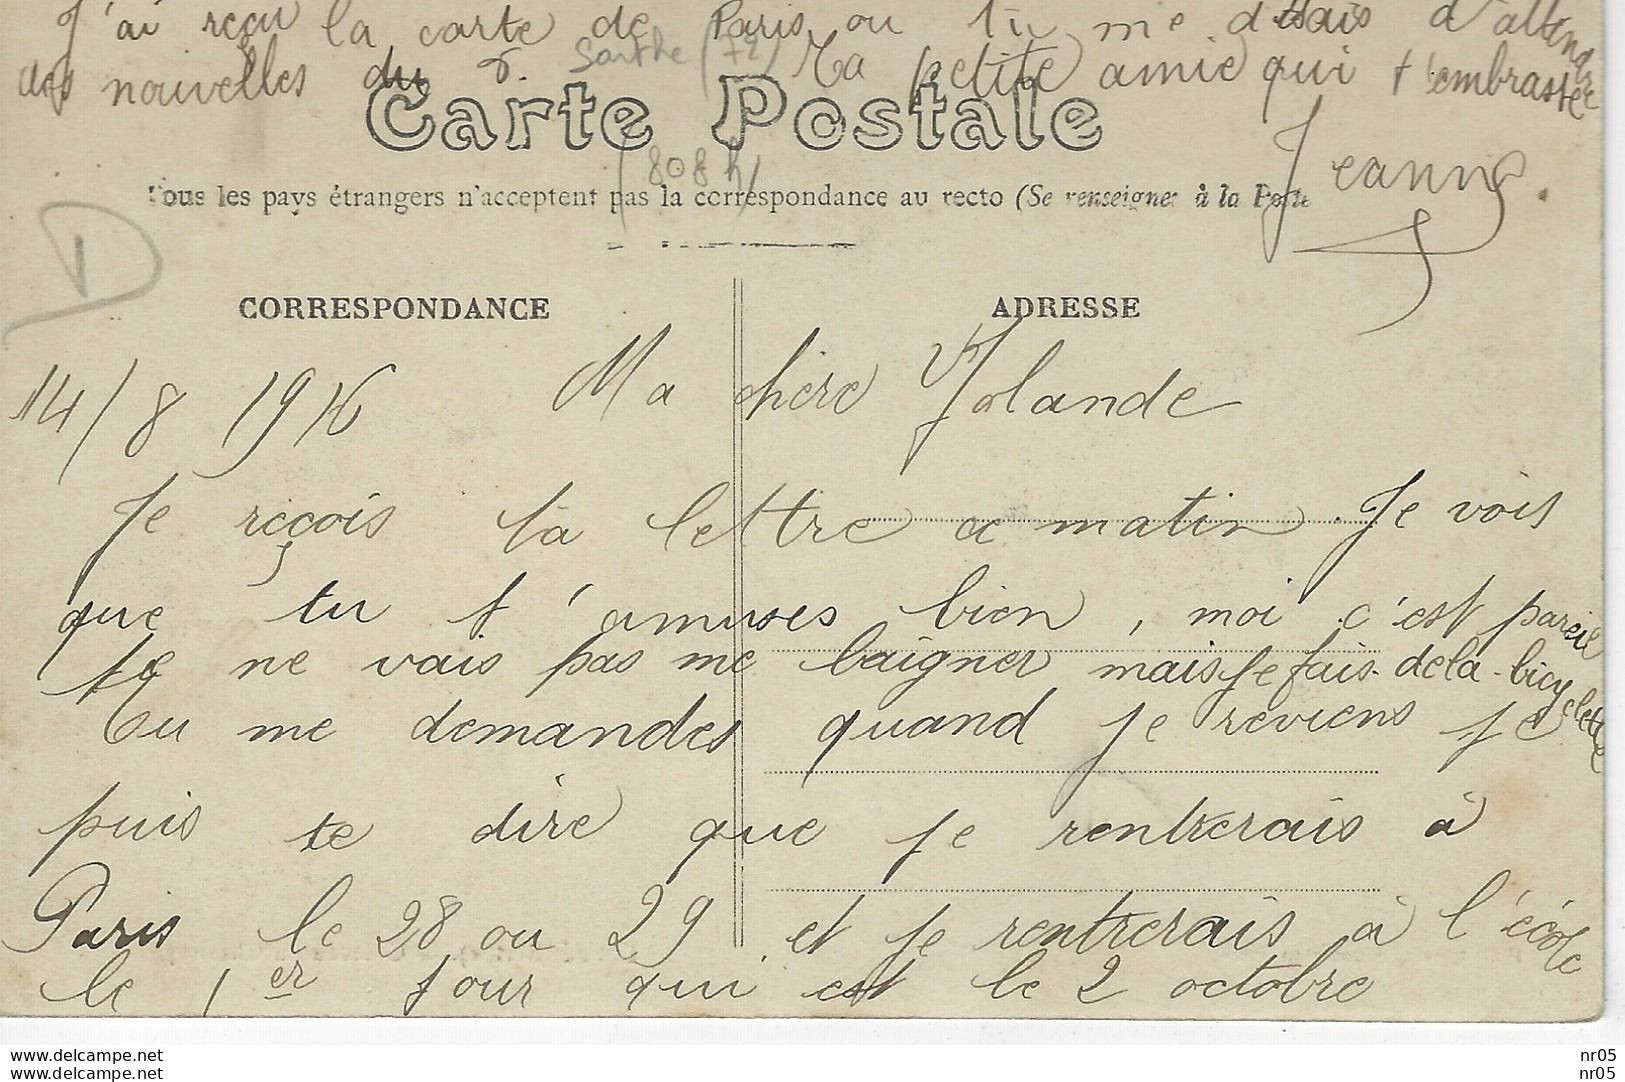 J'ai reçu la carte de Paris ou tu me disais d'attendre
des nouvelles du Sarthe (72) Ta petite amie qui t'embrasse
Carte Postale
Jeanne
(808 h)
Tous les pays étrangers n'acceptent pas la correspondance au recto (Se renseigner à la Poste
D
CORRESPONDANCE ADRESSE
14/8 1916 Ma chère Yolande
Je reçois ta lettre ce matin. Je vois
que tu t'amuses bien, moi c'est pareil
je ne vais pas me baigner mais je fais de la bicyclette
Tu me demandes quand je reviens je
puis te dire que je rentrerais à
Paris le 28 ou 29 et je rentrerais à l'école
le 1er jour qui est le 2 octobre
www.delcampe.com nr05
www.delcampe.com nr05